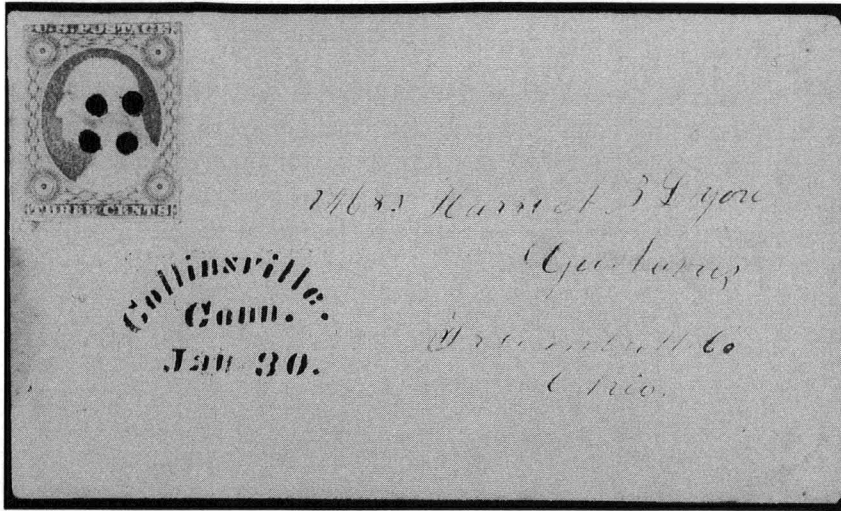 U.S. POSTAGE.
THREE CENTS
Collinsville.
Conn.
Jan 30.
Harriet
Gustavus
Trumbull Co
Ohio.